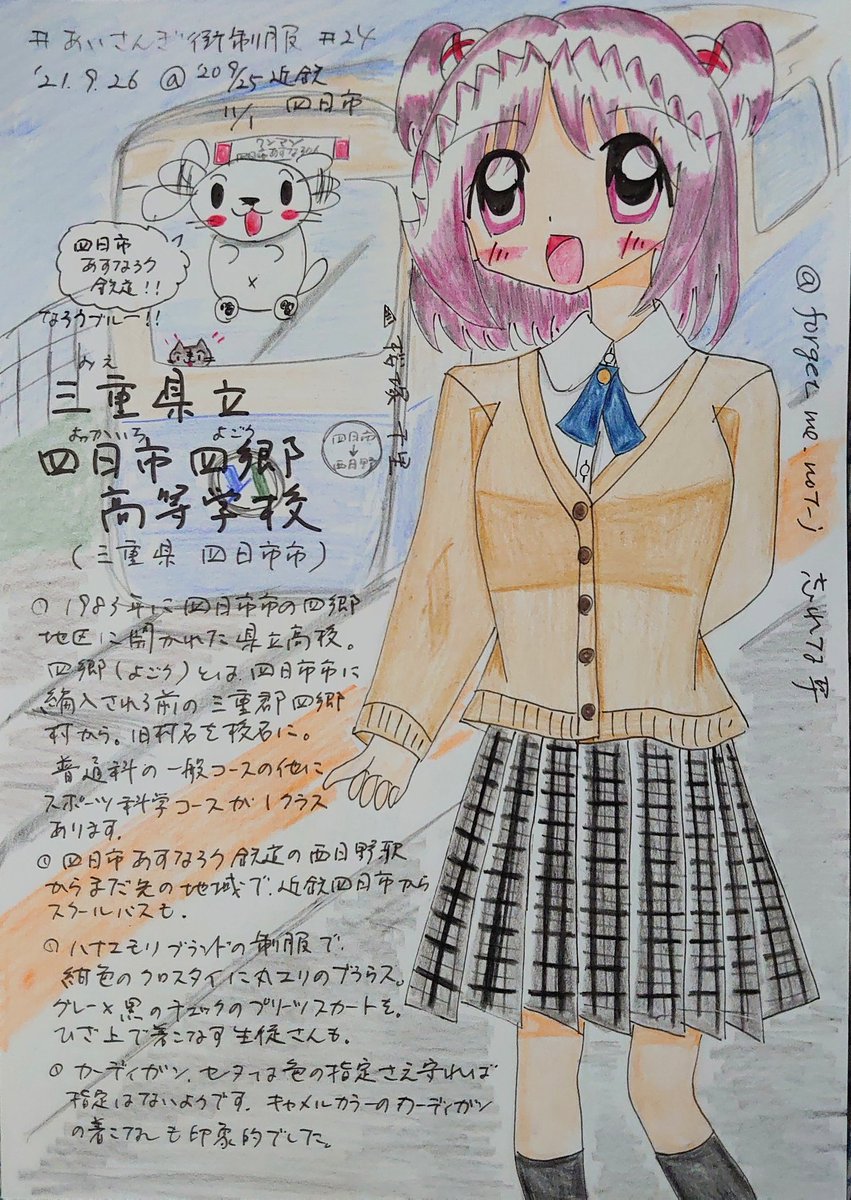 #あいさんぎ街制服 #24
'21.9.26 @ '20 9/25 近鉄
11/1 四日市
ワンマン
四日市あすなろう
四日市
あすなろう
鉄道!!
なろうブルー!!
みえ
三重県立
よっかいち よごう
四日市四郷
高等学校
(三重県 四日市市)
四日市
↓
西日野
千里
@forget.me.not-j
忘れな草
① 1983年に四日市市の四郷
地区に開かれた県立高校。
四郷(よごう)とは四日市市に
編入される前の三重郡四郷
村から。旧村名を校名に。
普通科の一般コースの他に
スポーツ科学コースが1クラス
あります。
四日市あすなろう鉄道の西日野駅
からまだ先の地域で、近鉄四日市から
スクールバスも。
ハナエモリブランドの制服で、
紺色のクロスタイに丸エリのブラウス。
グレー×黒のチェックのプリーツスカートを。
ひざ上で着こなす生徒さんも。
カーディガン、セーターは色の指定さえ守れば
指定はないようです。キャメルカラーのカーディガン
の着こなしも印象的でした。